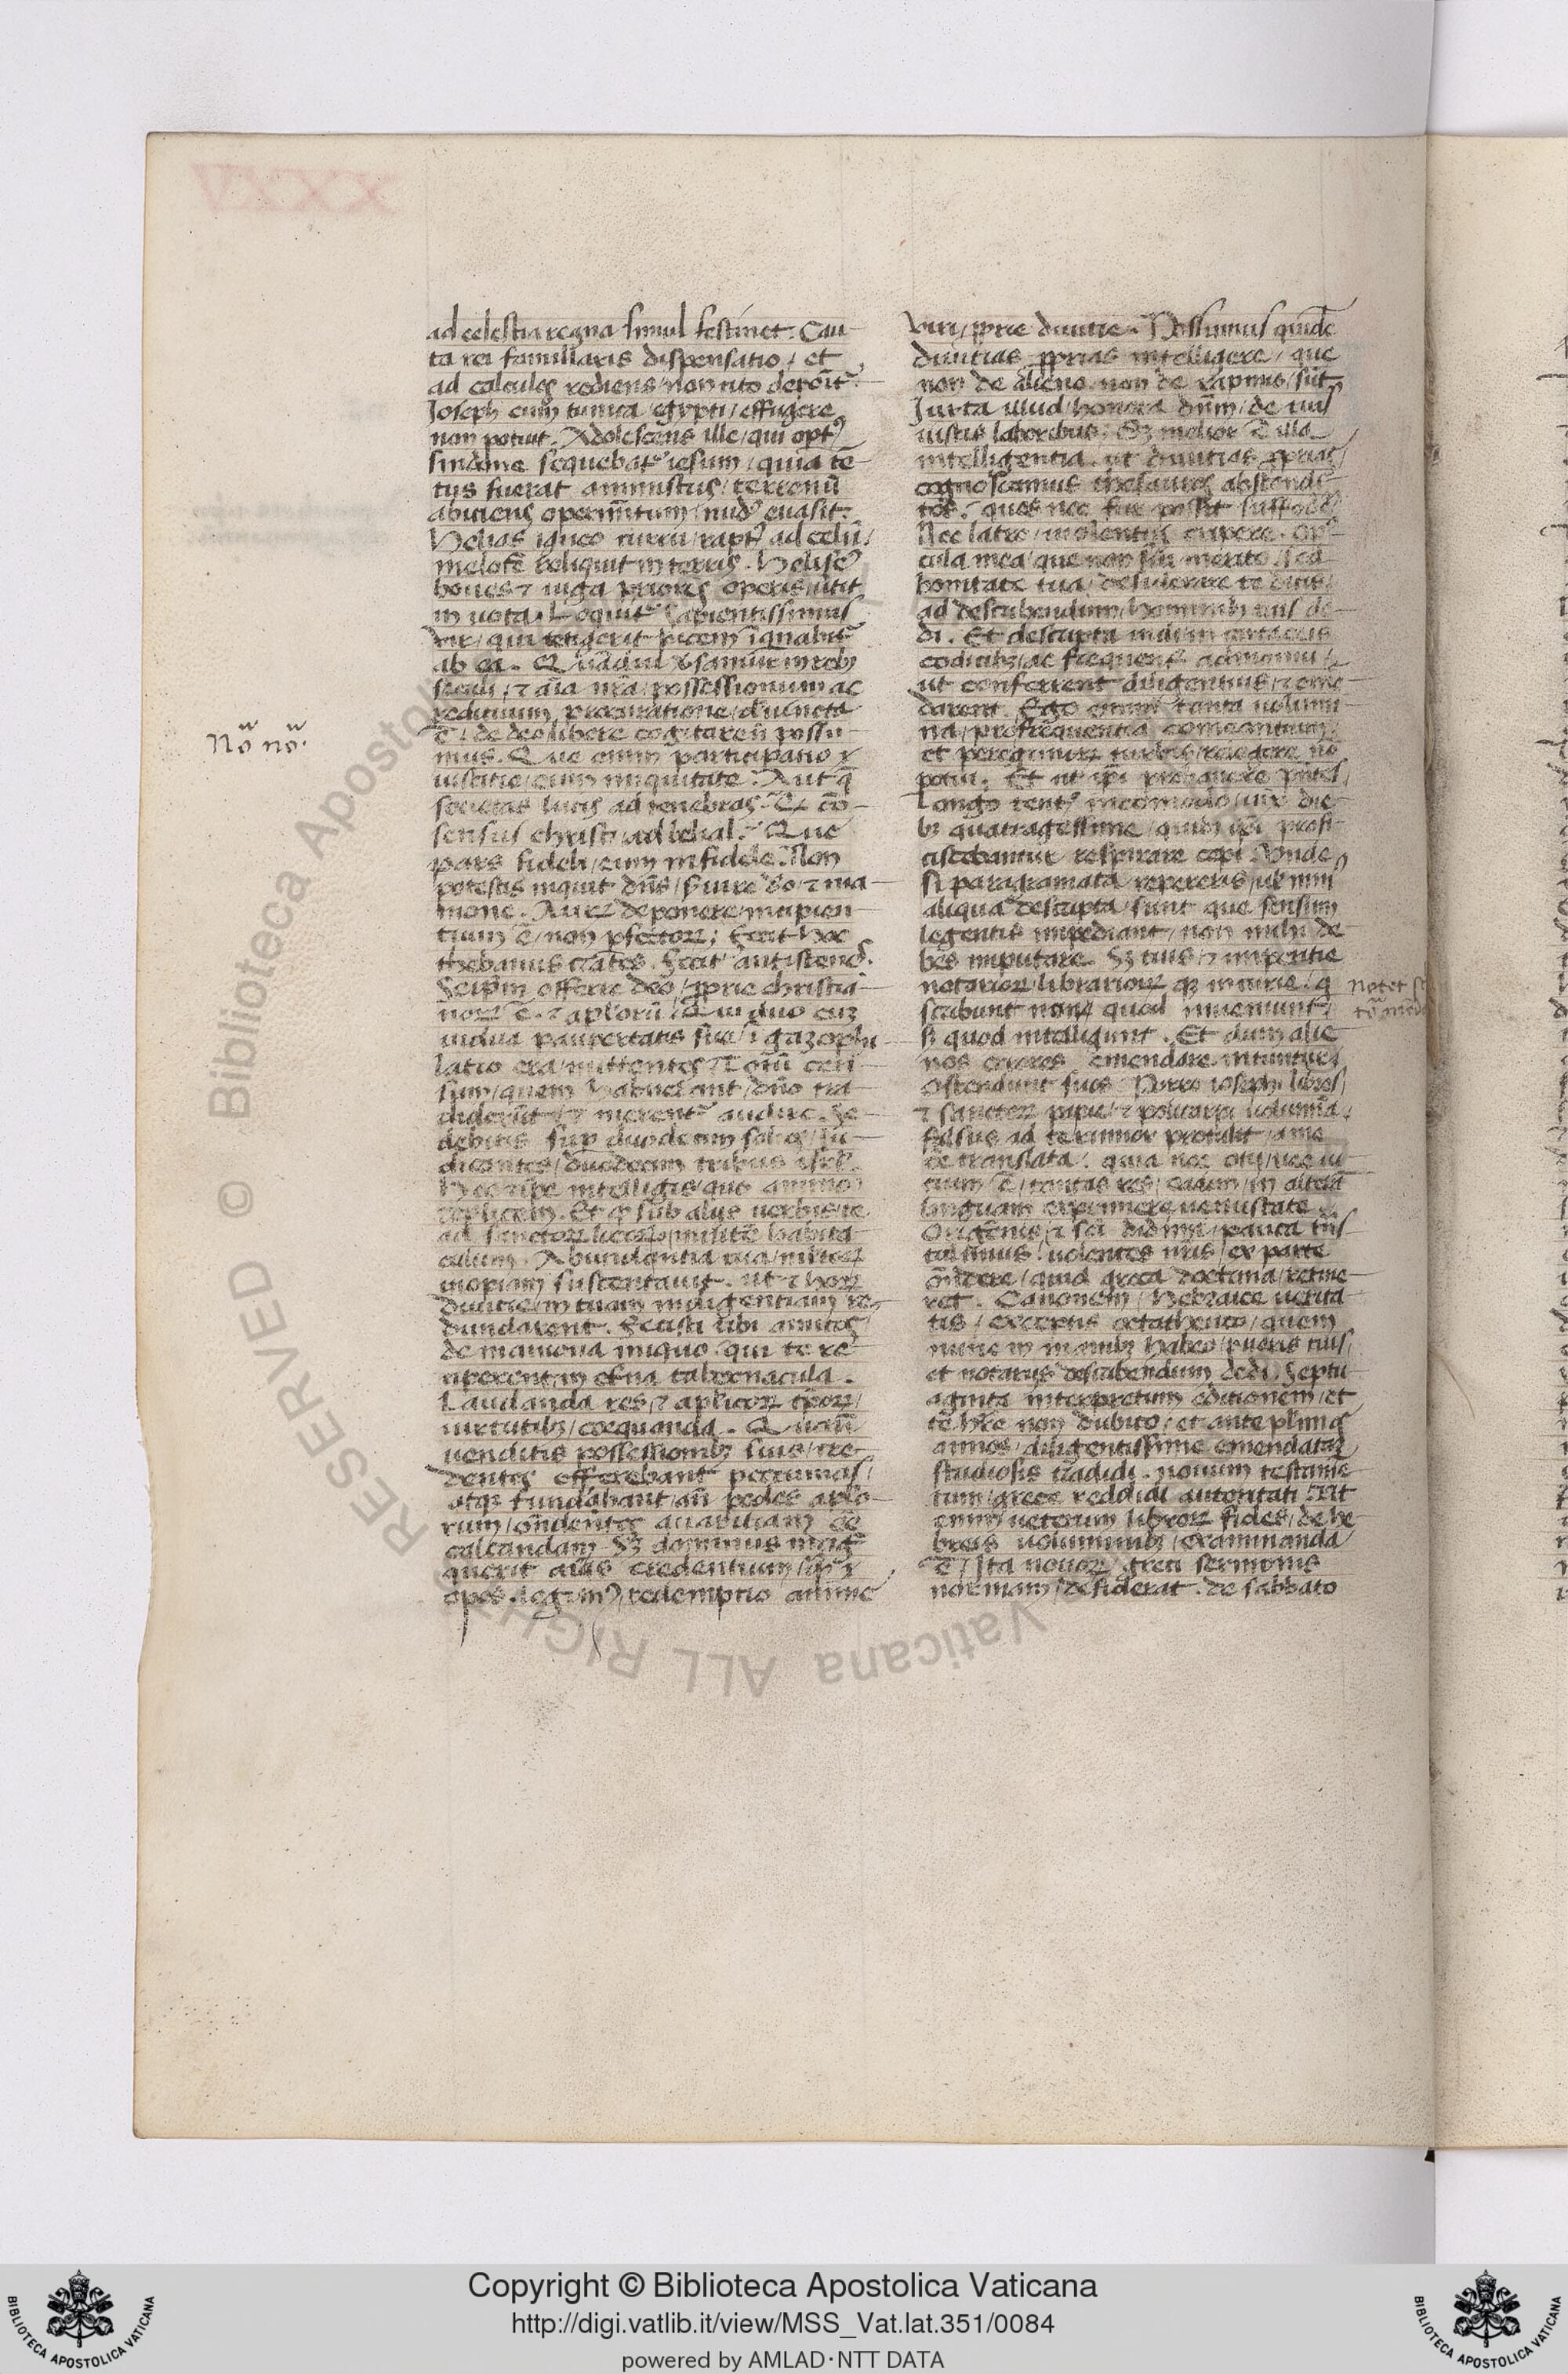 XXXV
ad celestia regna simul festinet. Cau-
ta rei familiaris dispensatio / et
ad calculos rediens / non cito deponit~.
Joseph cum tunica / egypti / effugere
non potuit. Adolescens ille / qui opt9
sindone sequebat~ iesum / quia te-
tus fuerat amministris / terrenū
abiciens operim̄tum / nud9 euasit.
Helias igneo curru / rapt9 ad celū /
melotē reliquit in terris. Helise9
boues ⁊ iuga prioris operis / ūtit
in uota. Loquit~ sapientissimus
vir / qui tetigerit picem īqnabit~
ab ea. Q uādiu ūsamur in rebꝫ
seculi / ⁊ aīa nr̄a / possessionum ac
redituum procuratione / deuincta
ē / de deo libere cogitare n̄ possu-
mus. Que enim participatio
iustitie / cum iniquitate. Aut q̄
societas lucis ad tenebras. Q̄ cō-
sensus christi / ad belial. Que
pars fideli / cum infidele. Non
potestis inquit dn̄s / ẜuire deo / ⁊ ma-
mone. Auꝝ deponere / incipien-
tium ē / non pfectoꝝ; fecit hoc
thebanus crates. fecit antistenes.
Seipm̄ offerre deo / pprie christia-
noꝝ ē. ⁊ aplorū. Qui duo cuꝫ
uidua paupertatis sue / ī gazophi-
latio era / mittentes / totū cen-
sum / quem habuerant / dn̄o tra-
diderūt / ⁊ merent~ audire. Se-
debitis sup duodecim solios / iu-
dicantes / duodecim tribus isrl̄.
Hec ⁊ ipse intelligis / quo animo
replicem. Et ꝙ sub alijs uerbis / te
ad sanctoꝝ locoꝝ / inuitē habita-
culum. Abundantia tua / multoꝝ
inopiam sustentauit. ut ⁊ hoꝝ
diuitie / in tuam indigentiam re-
dundarent. Fecisti tibi amicos
de mamona iniquo. qui te re-
ciperent / in et̄na tabernacula.
Laudanda res / ⁊ aplicoꝝ tp̄oꝝ /
uirtutibꝫ / coequanda. Q uan̄
uenditis possessionibꝫ suis / cre-
dentes offerebant precumas /
atqꝫ fundabant / an̄ pedes aplo-
rum / on̄dentes auaritiam eē
calcandam. Sꝫ dominus mag~
querit aīas credentium / qm̄
opes. legim9 / redemptio anime
viri / pprie diuitie. Possumus quidē
diuitias pprias intelligere / que
non de alieno non de rapinis / sūt
Juxta illud / honora dn̄m / de tuis
iustis laboribus. Sꝫ melior ē illa
intelligentia. ut diuitias pprias /
cognoscamus thesauros abscondi-
tos. quos nec fur possit suffodē
Nec latro / uiolentus eripere. Op9-
cula mea / que non sui merito / sed
bonitate tua / desiderare te dicis
ad describendum / hominibꝫ tuis de-
di. Et descripta uidi / in cartaceis
codicibꝫ / ac frequent~ admonui /
ut conferrent diligentius / ⁊ eme-
darent. Ego enim tanta uolumi-
na / pre frequentia comeantium
et peregrinoꝝ turbis / relegere nō
potui. Et ut ipi probauere pn̄tes /
Longo tent9 incomodo / uix die-
bꝫ quatragessime / quibꝫ ipi profi-
ciscebantur respirare cepi. Unde
si paragramata repereris / ul̄ min9
aliqua descripta sunt que sensum
legentis impediant / non michi de-
bes imputare. Sꝫ tuis / ⁊ imperitie
notarioꝝ / librarioꝝ qꝫ incurie / q̄
scribunt non quod inueniunt /
sꝫ quod intelligunt. Et dum alie-
nos errores emendare nituntur
ostendunt suos. Porro iosephi libros /
⁊ sanctoꝝ papie / ⁊ policarpi uolumīa
falsus ad te rumor pertulit / a me
eē translata. quia nec otij / nec ui-
rium ē / tantas res / eadem / in alterā
linguam exprimere uenustate
Origenis / ⁊ sci didimi / pauca tn̄s-
tulimus. uolentes n̄ris / ex parte
on̄dere / quid greca doctrina / retine-
ret. Canonem / Hebraice uerita-
tis / exceptis octatheuco / quem
nunc in manibꝫ habeo / pueris tuis /
et notarijs describendum dedi. Septu-
aginta interpretum editionem / et
te h̄re non dubito / et ante plurimos
annos / diligentissime emendatā
studiosis tradidi. nouum testame-
tum / grece reddidi autoritati. Ut
enim ueterum libroꝝ fides / de he-
breis uoluminibꝫ / examinanda
ē / Ita nouoꝝ greci sermonis
normam / desiderat. de sabbato
Nō nō.
notet
Copyright © Biblioteca Apostolica Vaticana
http://digi.vatlib.it/view/MSS_Vat.lat.351/0084
powered by AMLAD·NTT DATA
BIBLIOTECA APOSTOLICA VATICANA
BIBLIOTECA APOSTOLICA VATICANA
© Biblioteca Apostolica Vaticana ALL RIGHTS RESERVED